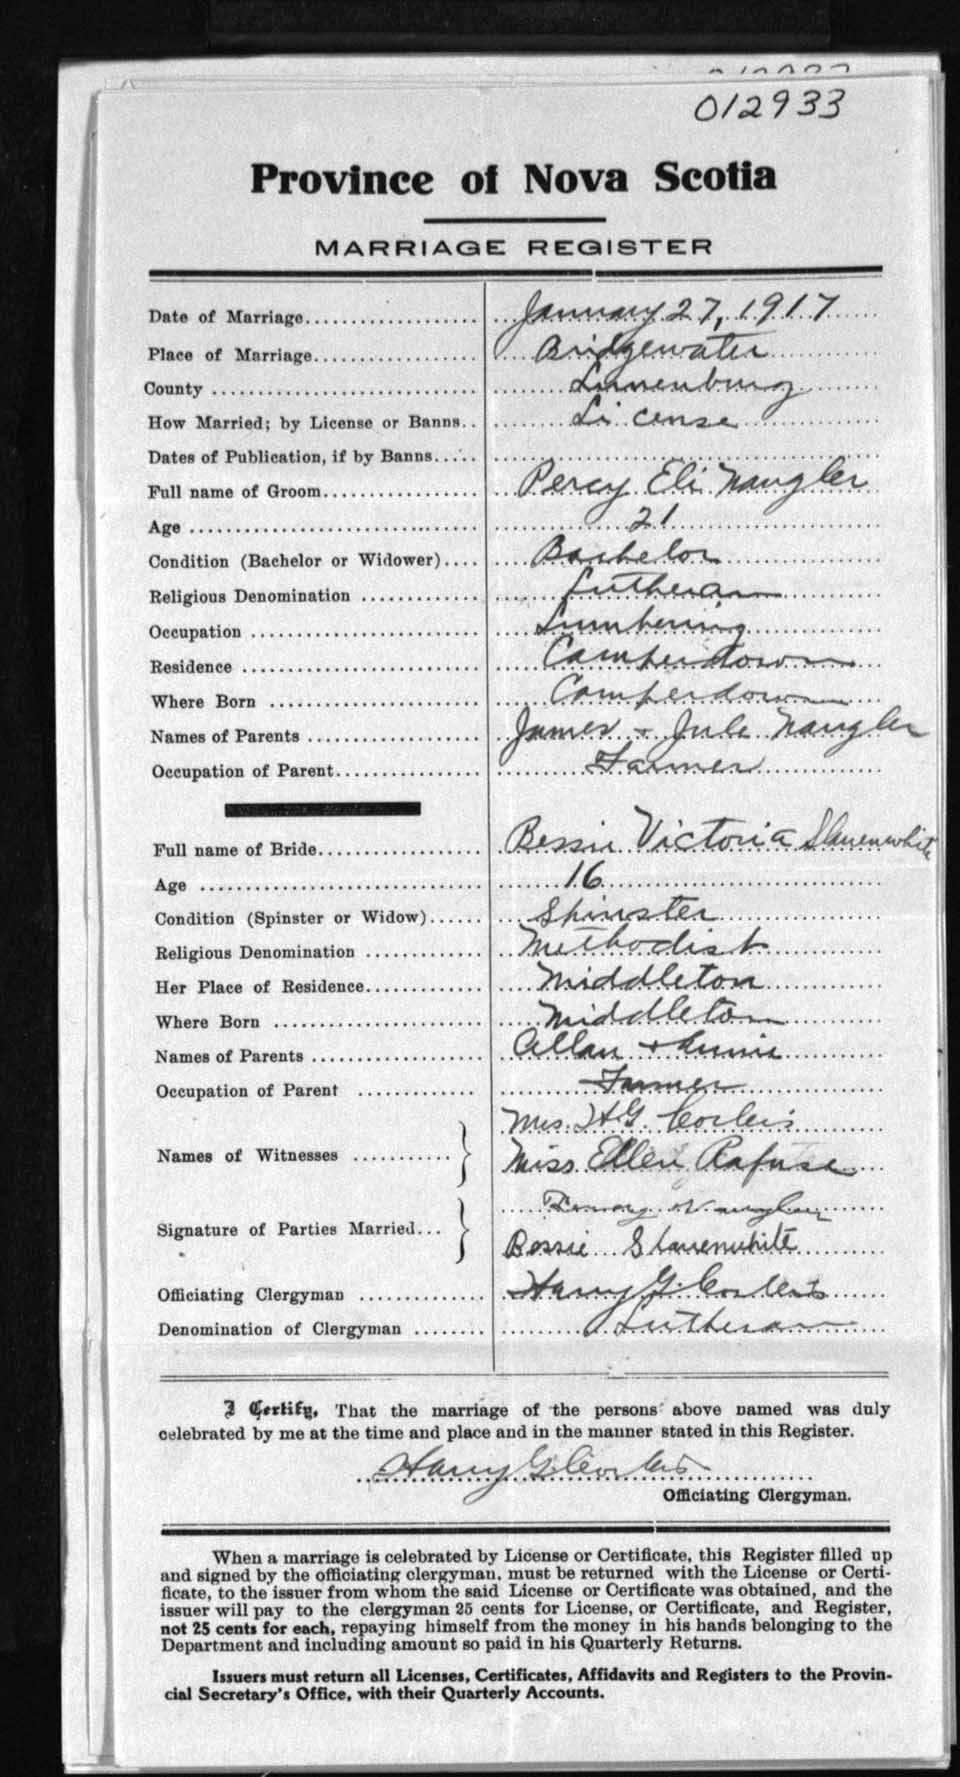 012933
Province of Nova Scotia
MARRIAGE REGISTER
Date of Marriage January 27, 1917
Place of Marriage Bridgewater
County Lunenburg
How Married; by License or Banns License
Dates of Publication, if by Banns
Full name of Groom Percy Eli Naugler
Age 21
Condition (Bachelor or Widower) Bachelor
Religious Denomination Lutheran
Occupation Lumbering
Residence Camperdown
Where Born Camperdown
Names of Parents James + Jule Naugler
Occupation of Parent Farmer
Full name of Bride Bessie Victoria Slauenwhite
Age 16
Condition (Spinster or Widow) Spinster
Religious Denomination Methodist
Her Place of Residence Middleton
Where Born Middleton
Names of Parents Allan + Annie
Occupation of Parent Farmer
Mrs. H G.
Names of Witnesses
Miss Ellen Rafuse
Naugler
Signature of Parties Married
Bessie Slauenwhite
Officiating Clergyman Harry G.
Denomination of Clergyman Lutheran
I Certify, That the marriage of the persons above named was duly
celebrated by me at the time and place and in the manner stated in this Register.
Harry G.
Officiating Clergyman.
When a marriage is celebrated by License or Certificate, this Register filled up
and signed by the officiating clergyman, must be returned with the License or Certi-
ficate, to the issuer from whom the said License or Certificate was obtained, and the
issuer will pay to the clergyman 25 cents for License, or Certificate, and Register,
not 25 cents for each, repaying himself from the money in his hands belonging to the
Department and including amount so paid in his Quarterly Returns.
Issuers must return all Licenses, Certificates, Affidavits and Registers to the Provin-
cial Secretary's Office, with their Quarterly Accounts.